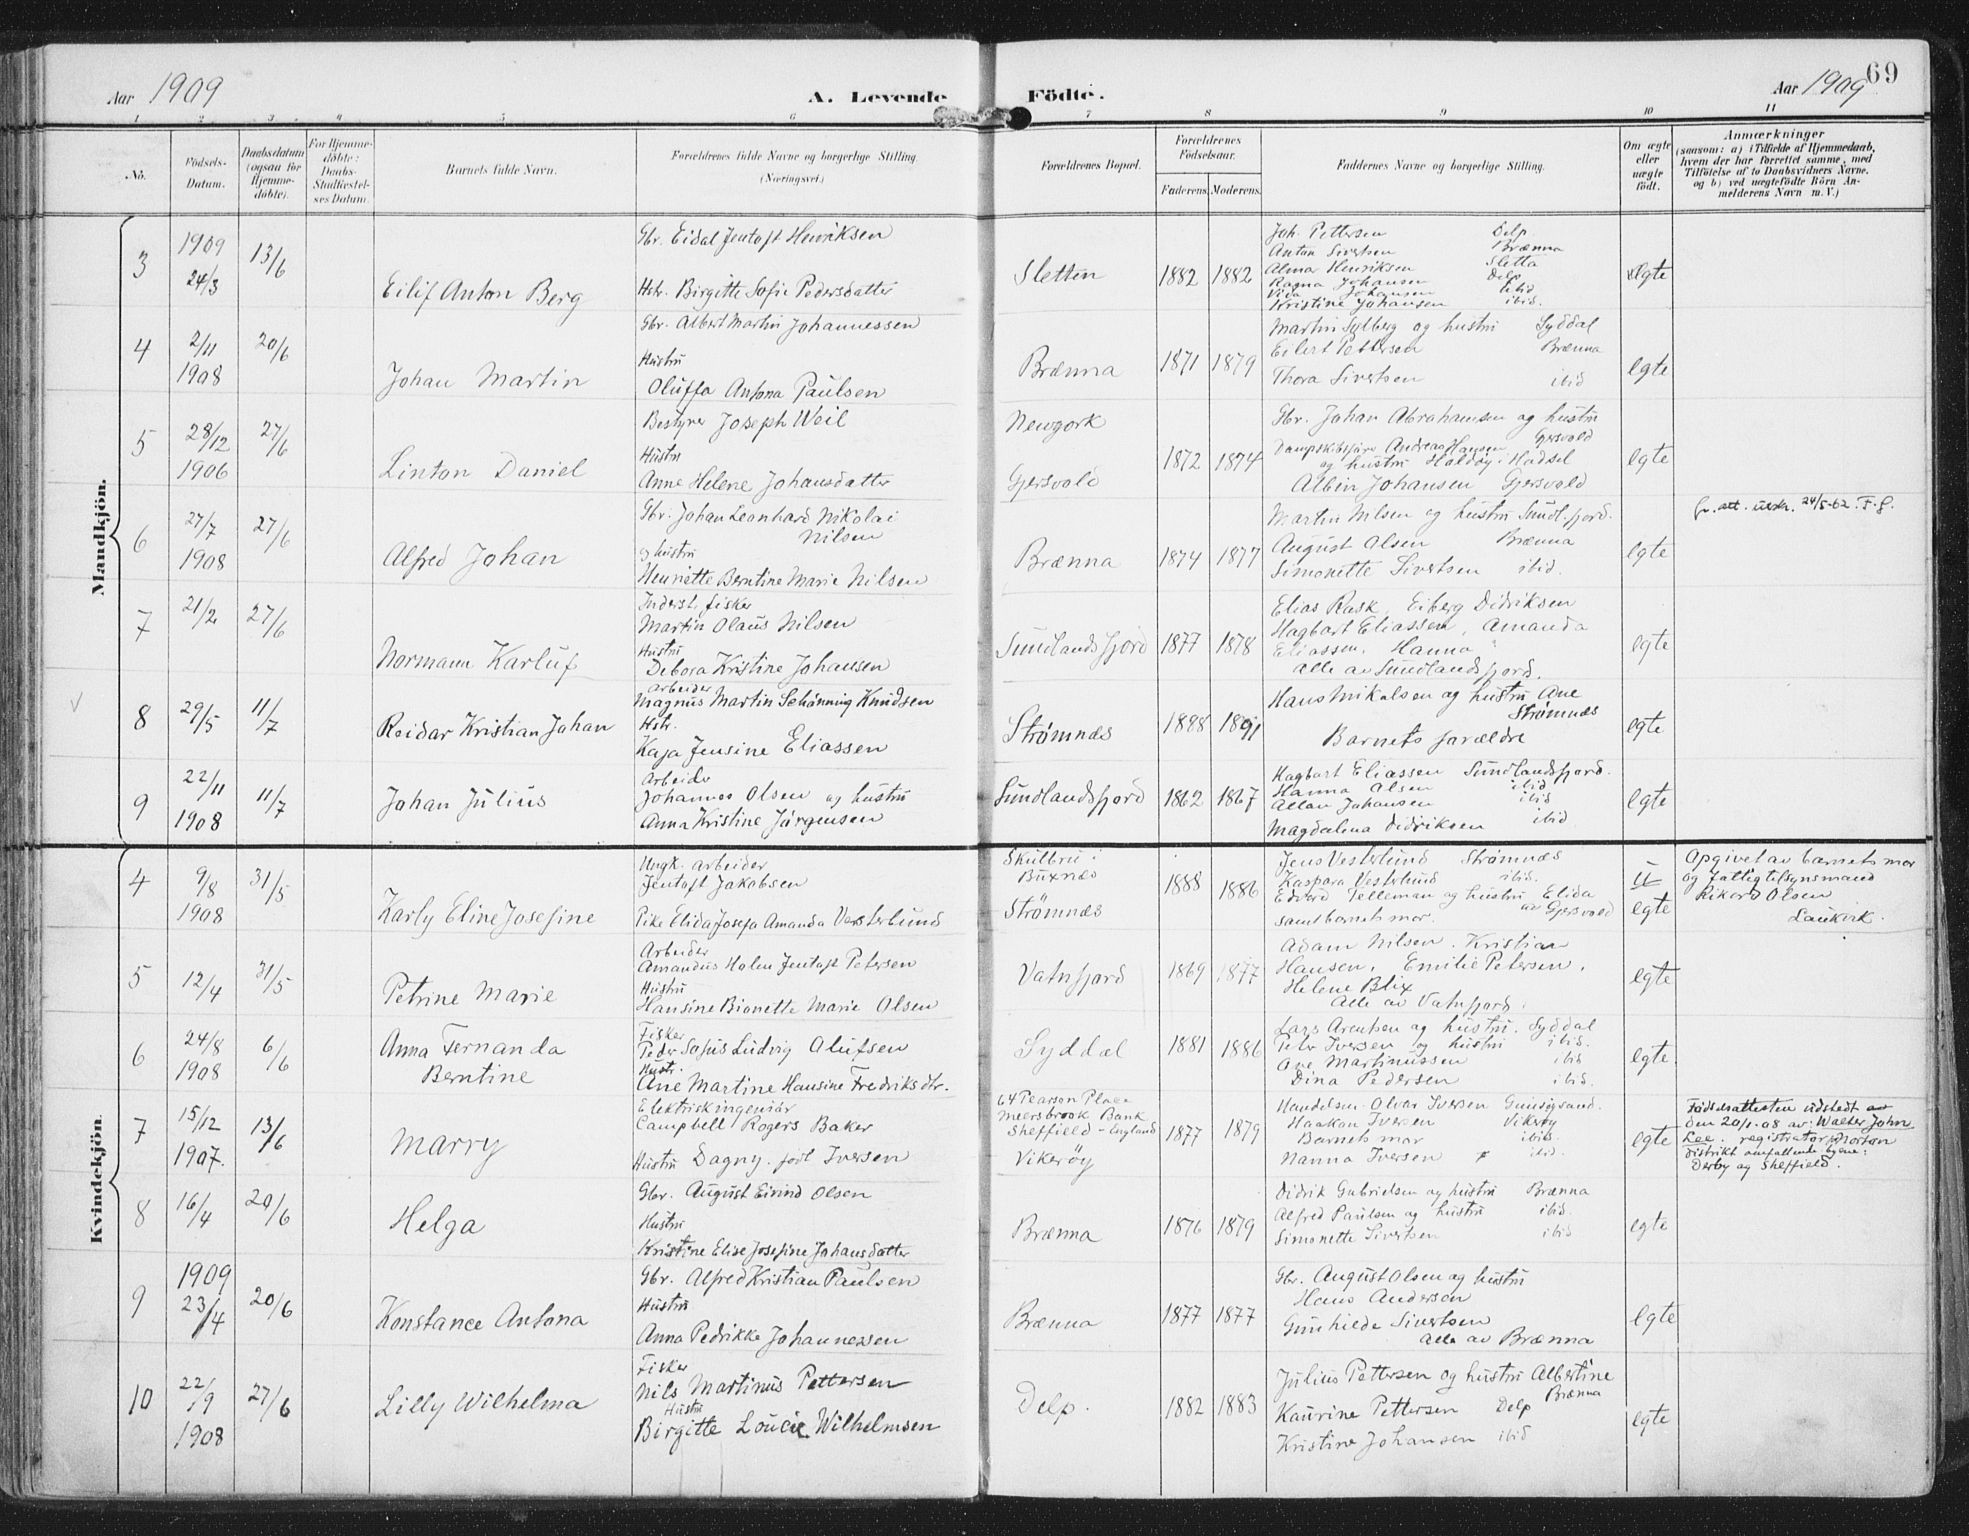 Aar 1909
A. Levende Födte.
Aar 1909
69
1 2 3 4 5 6 7 8 9 10 11
No.
Födsels-Datum.
Daabsdatum (ogsaa för Hjemme-döbte).
For Hjemme-döbte: Daabs-Stadfæstel-ses Datum.
Barnets fulde Navn.
Forældrenes fulde Navne og borgerlige Stilling. (Næringsvei.)
Forældrenes Bopæl.
Forældrenes Födselsaar.
Faderens. Moderens.
Faddernes Navne og borgerlige Stilling.
Om ægte eller uægte födt.
Anmærkninger
(saasom: a) i Tilfælde af Hjemmedaab, hvem der har forrettet samme, med Tilföielse af to Daabsvidners Navne. og b) ved uægtefödte Börn An-melderens Navn m. V.)
Mandkjön.
3
1909
24/3
13/6
Eilif Anton Berg
Gbr. Eidal Jentoft Henriksen
Hstr. Birgitte Sofie Pedersdatter
Sletten
1882 1882
Joh. Pettersen Delp
Anton Sivertsen Brænna
Almar Henriksen Sletta
Ragna Johansen Delp
Vida Johansen ibid
Kristine Johansen ibid.
egte
4
2/11
1908
20/6
Johan Martin
Gbr. Albert Martin Johannessen
Hustru
Oluffa Antona Paulsen
Brænna
1871 1879
Martin Sylberg og hustru Syddal
Eilert Pettersen Brænna
Thora Sivertsen ibid
egte
5
28/12
1906
27/6
Linton Daniel
Bestyrer Joseph Weil
Hustru
Anne Helene Johansdatter
Newyork
Gjersvold
1872 1874
Gbr. Johan Abrahamsen og hustru
Gjersvold
Dampskibsfører Andreas Hansen
og hustru Haldøy. Hadsel
Albin Johansen Gjersvold
egte
6
27/7
1908
27/6
Alfred Johan
Gbr. Johan Leonhard Nikolai
Nilsen
og hustru
Henriette Berntine Marie Nilsen
Brænna
1874 1877
Martin Nilsen og hustru Sundl.fjord.
August Olsen Brænna
Simonette Sivertsen ibid.
egte
fr. att. utskr. 24/5-62. F.g.
7
21/2
27/6
Normann Karluf
Inderst, fisker
Martin Olaus Nilsen
Hustru
Debora Kristine Johansen
Sundlandsfjord
1877 1878
Elias Rask, Eiberg Didriksen
Hagbart Eliassen, Amanda
Eliassen, Hanna "
alle av Sundlandsfjord.
egte
8
29/5
11/7
Reidar Kristian Johan
Arbeider
Magnus Martin Schønning Knudsen
Hstr.
Kaja Jensine Eliassen
Strømnæs
1888 1891
Hans Mikalsen og hustru Ane
Strømnæs
Barnets forældre
egte
9
22/11
1908
11/7
Johan Julius
Arbeider
Johannes Olsen og hustru
Anna Kristine Jørgensen
Sundlandsfjord
1862 1867
Hagbart Eliassen Sundlandsfjord.
Hanna Olsen ibid
Allan Johansen ibid
Magdalena Didriksen ibid
egte
Kvindekjön.
4
9/8
1908
31/5
Karly Eline Josefine
Ungk. arbeider
Jentoft Jakobsen
Pike Elida Josefa Amanda Vesterlund
Skulbru i
Buxnæs
Strømnæs
1888 1886
Jens Vesterlund Strømnæs
Kaspara Vesterlund ibid.
Edvard Telleman og hustru Elida
av Gjersvold
samt barnets mor.
u
egte
Opgivet av barnets mor
og fattigtilsynsmand
Rikard Olsen
Laukvik.
5
12/4
31/5
Petrine Marie
Arbeider
Amandus Holen Jentoft Petersen
Hustru
Hansine Bionette Marie Olsen
Vatnfjord
1869 1877
Adam Nilsen. Kristian
Hansen, Emilie Petersen,
Helene Blix
Alle av Vatnfjord.
egte
6
24/8
1908
6/6
Anna Fernanda
Berntine
Fisker
Peder Sofus Ludvig Olufsen
Hustr.
Ane Martine Hansine Fredriksdtr.
Syddal
1881 1886
Lars Arentsen og hustru. Syddal
Petr Iversen og hustru ibid.
Ove Martinussen ibid
Dina Pedersen ibid.
egte.
7
15/12
1907.
13/6
Marry
Elektriskingeniør
Campbell Rogers Baker
Hustru Dagny, født Iversen
64 Pearson Place
Meersbrook Bank
Sheffield - England
Vikerøy
1877 1879
Handelsm. Olvar Iversen Gimsøysand.
Haakon Iversen Vikerøy
Barnets mor ibid.
Nanna Iversen ibid.
egte
Fødselsattesten utstedt
den 20/1-08 av: Walter John
Lee. registrator Norton
distrikt omfattende byene:
Derby og Sheffield.
8
16/4
20/6
Helga
Gbr. August Eivind Olsen
Hustru
Kristine Elise Josefine Johansdatter
Brænna
1876 1879
Didrik Gabrielsen og hustru Brænna
Alfred Paulsen og hustru ibid.
Simonette Sivertsen ibid
egte
9
1909
23/4
20/6
Konstance Antona
Gbr. Alfred Kristian Paulsen
Hustru
Anna Pedrikke Johannessen
Brænna
1877 1877
Gbr. August Olsen og hustru
Hans Andersen
Gunhilde Sivertsen
Alle av Brænna
egte
10
22/9
1908
27/6
Lilly Wilhelma
Fisker
Nils Martinus Pettersen
Hustru
Birgitte Loucie Wilhelmsen
Delp.
1882 1883
Julius Pettersen og hustru Albertine
Brænna
Kaurine Pettersen Delp
Kristine Johansen ibid
egte